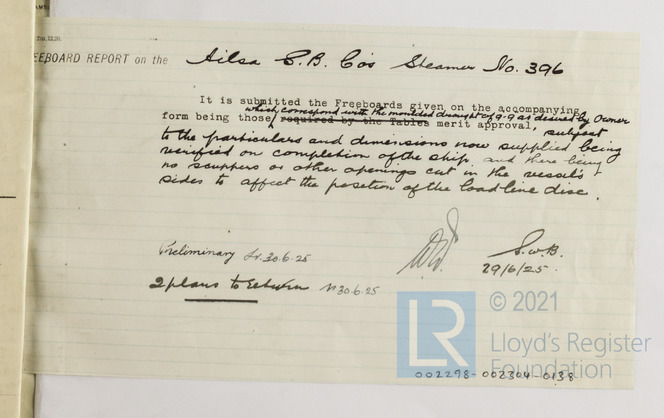 EEBOARD REPORT on the Ailsa S.B. Co's Steamer No. 396
It is submitted the Freeboards given on the accompanying
which correspond with the moulded draught of 9-9 as desired by Owner
form being those required by the Tables merit approval, subject
to the particulars and dimensions now supplied being
verified on completion of the ship, and there being
no scuppers or other openings cut in the vessel's
sides to affect the position of the load-line disc.
Preliminary Lr. 30.6.25
S.W.B.
29/6/25.
2 plans to return 30.6.25
© 2021
LR
Lloyd's Register
Foundation
002298-002304-0138